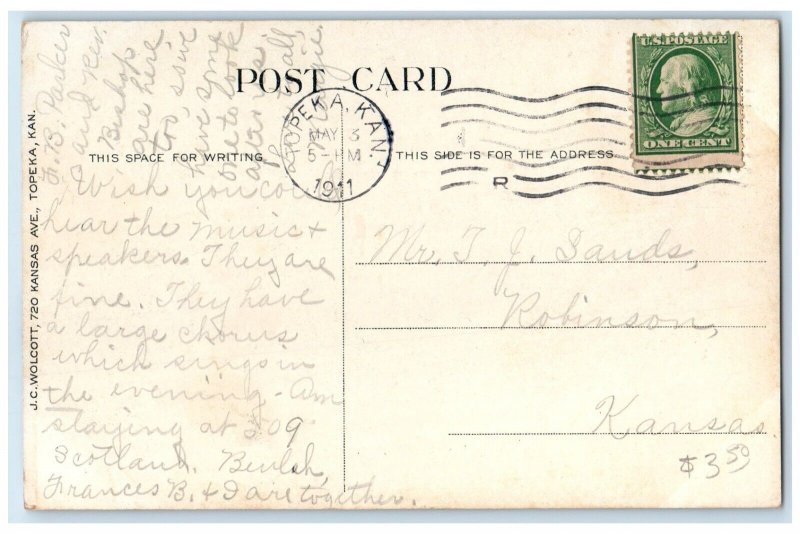 POST CARD
THIS SPACE FOR WRITING.
THIS SIDE IS FOR THE ADDRESS.
J.C. WOLCOTT, 720 KANSAS AVE., TOPEKA, KAN.
U.S. POSTAGE
ONE CENT
TOPEKA, KAN.
MAY 3
5-PM
1911
R
Wish you could
hear the music +
speakers. They are
fine. They have
a large chorus
which sings in
the evening - Am
staying at 309
Scotland. Beulah,
Frances B. + I are together.
F. B. Parker
and Rev.
Bishop
are here
too, so we
have some
one to look
after us
all,
Mr. T. J. Sands,
Robinson,
Kansas
$3.50